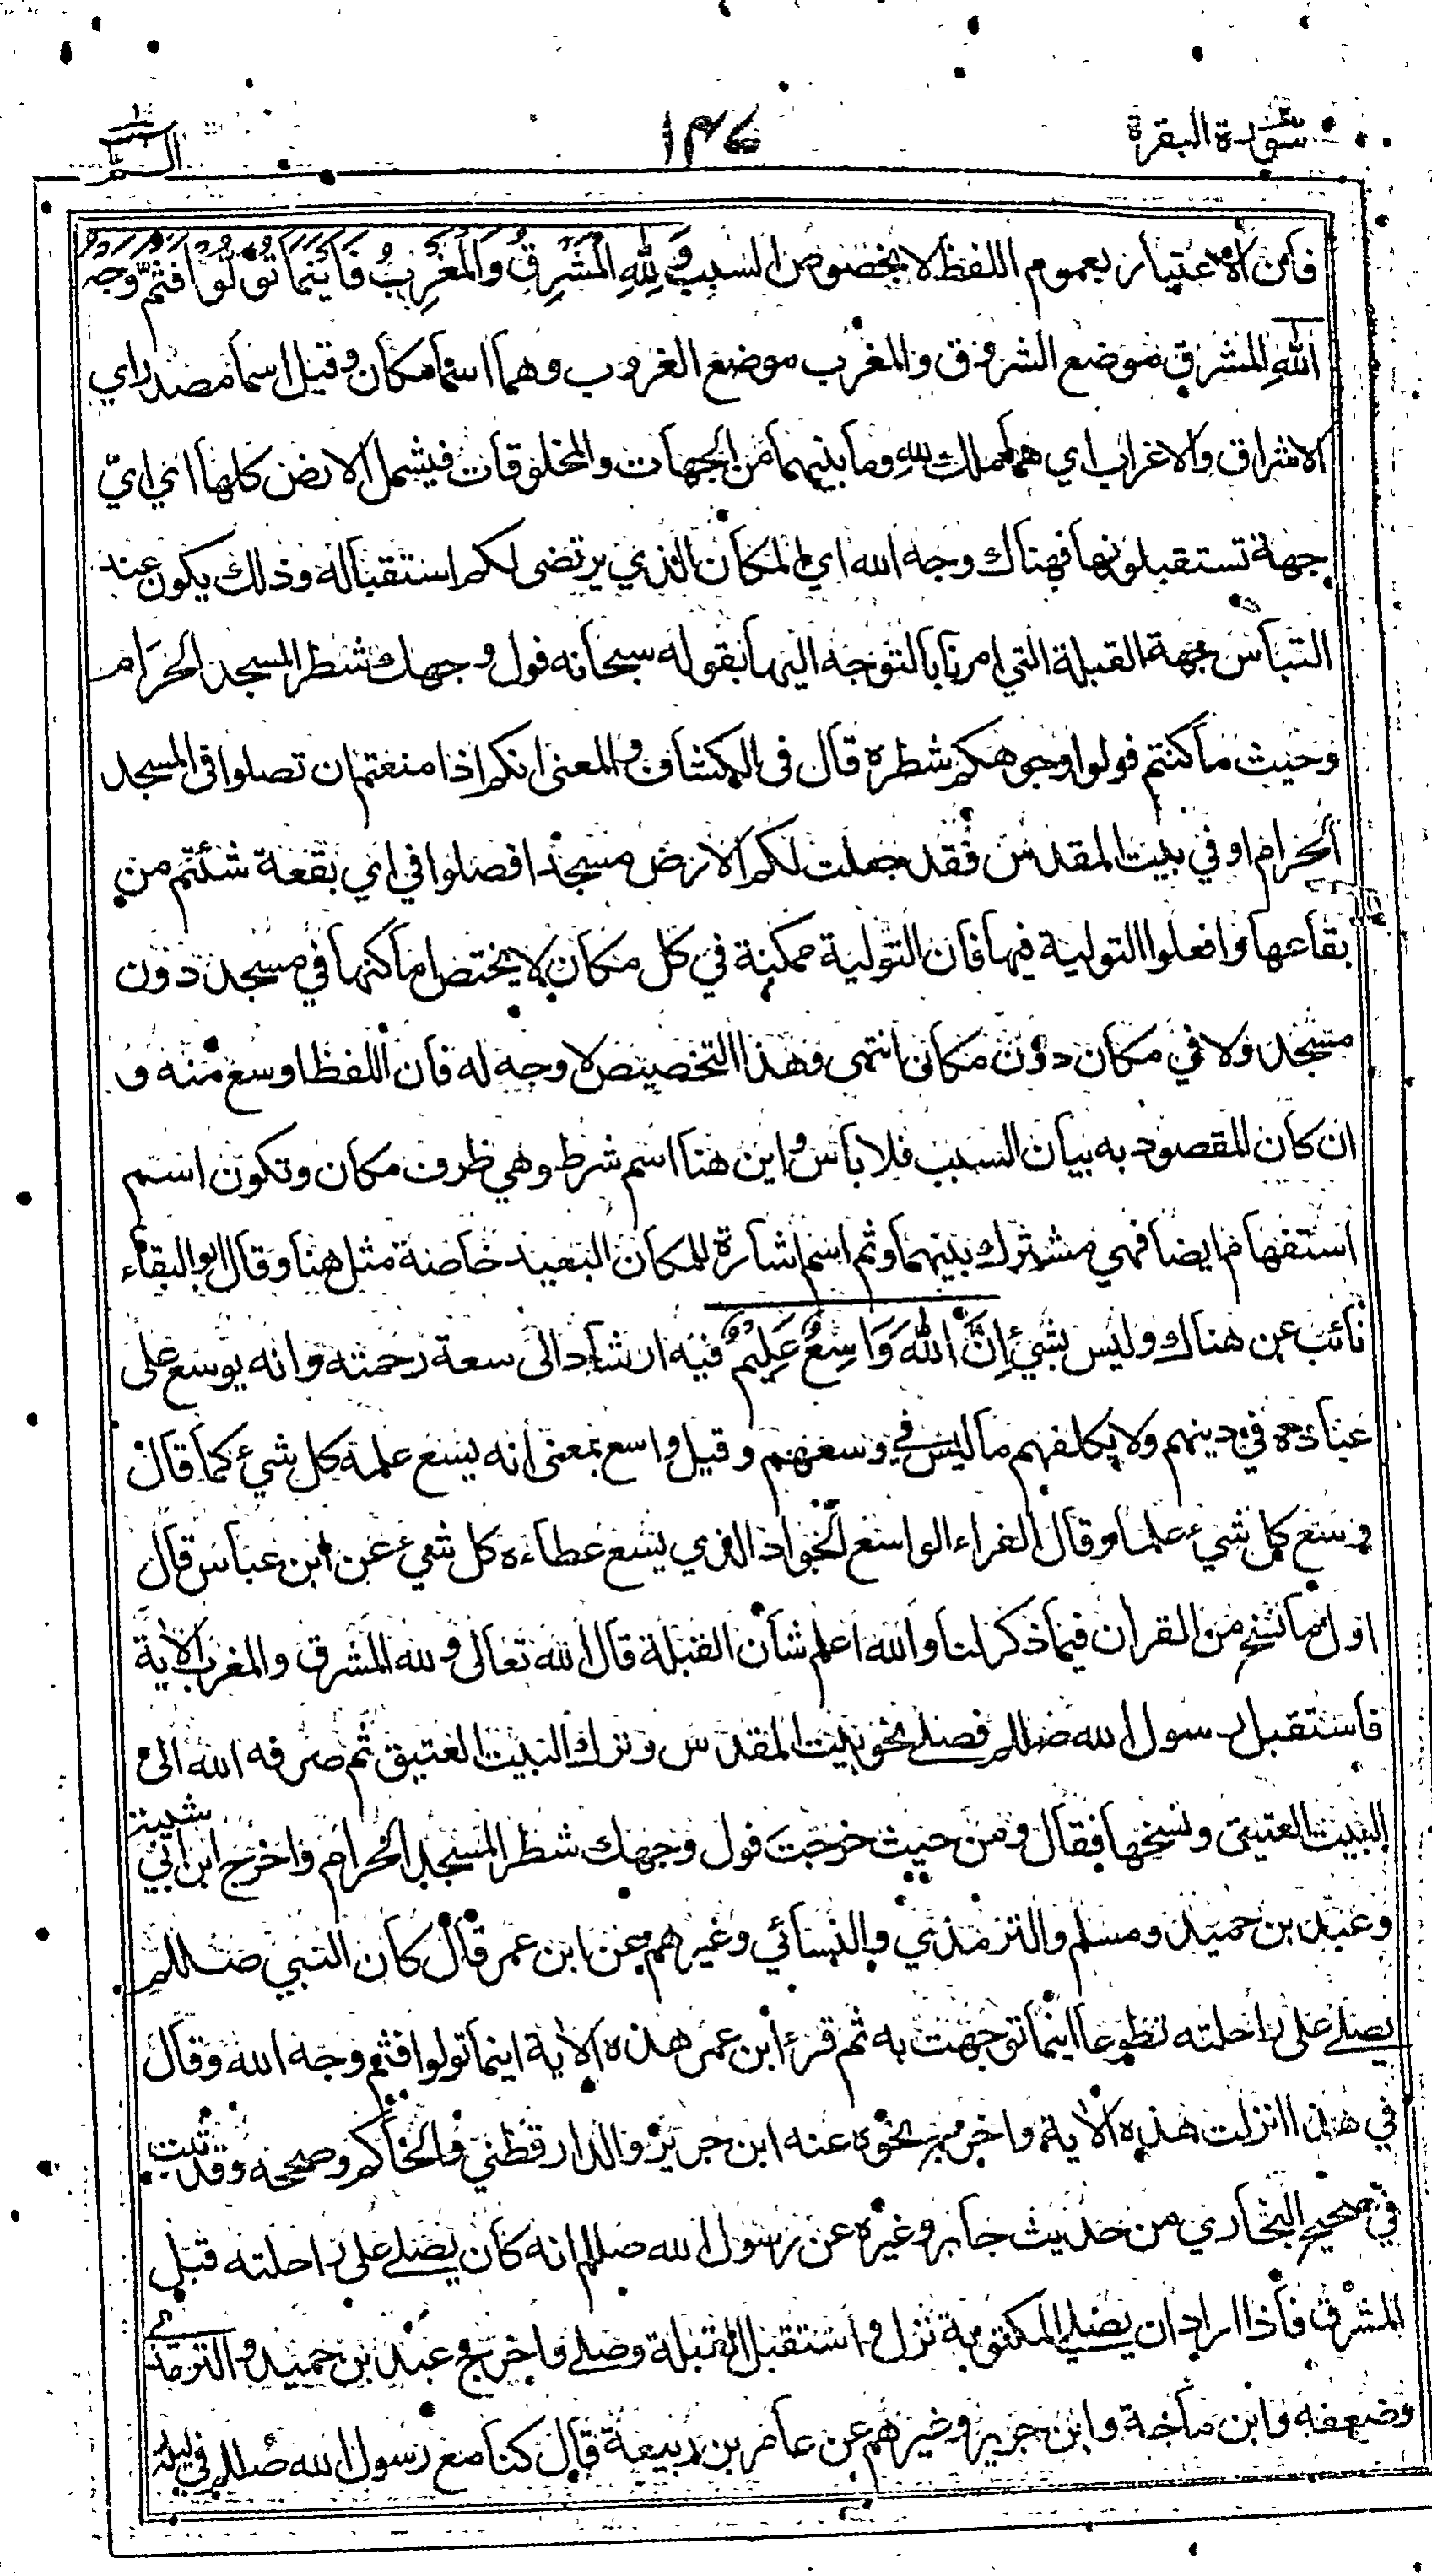 سورة البقرة
١٣٤
الم
فان الاعتبار بعموم اللفظ لا بخصوص السبب وَلِلّٰهِ الْمَشْرِقُ وَالْمَغْرِبُ فَاَيْنَمَا تُوَلُّوْا فَثَمَّ وَجْهُ
اللّٰهِ المشرق موضع الشروق والمغرب موضع الغروب وهما اسما مكان وقيل اسما مصدر اي
الاشراق والاغراب اي هما ملك لله وما بينهما من الجهات والمخلوقات فيشمل الارض كلها اي ايّ
جهة تستقبلونها فهناك وجه الله اي المكان الذي يرتضى لكم استقباله وذلك يكون عند
التباس جهة القبلة التي امرنا بالتوجه اليها بقوله سبحانه فول وجهك شطر المسجد الحرام
وحيث ما كنتم فولوا وجوهكم شطره قال في الكشاف والمعنى انكم اذا منعتم ان تصلوا في المسجد
الحرام او في بيت المقدس فقد جعلت لكم الارض مسجدا فصلوا في اي بقعة شئتم من
بقاعها وافعلوا التولية فيها فان التولية ممكنة في كل مكان لا يختص امكنها في مسجد دون
مسجد ولا في مكان دون مكان انتهى وهذا التخصيص لا وجه له فان اللفظ اوسع منه و
ان كان المقصود به بيان السبب فلا باس واين هنا اسم شرط وهي ظرف مكان وتكون اسم
استفهام ايضا فهي مشترك بينهما وثم اسم اشارة للمكان البعيد خاصة مثل هنا وقال ابو البقاء
نائب عن هناك وليس بشيء اِنَّ اللّٰهَ وَاسِعٌ عَلِيْمٌ فيه ارشاد الى سعة رحمته وانه يوسع على
عباده في دينهم ولا يكلفهم ما ليس في وسعهم وقيل واسع بمعنى انه يسع علمه كل شيء كما قال
وسع كل شيء علما وقال الفراء الواسع الجواد الذي يسع عطاءه كل شيء عن ابن عباس قال
اول ما نسخ من القران فيما ذكر لنا والله اعلم شأن القبلة قال الله تعالى ولله المشرق والمغرب الاية
فاستقبل رسول الله صللم فصلے نحو بيت المقدس وترك البيت العتيق ثم صرفه الله الى
البيت العتيق ونسخها فقال ومن حيث خرجت فول وجهك شطر المسجد الحرام واخرج ابن ابي شيبة
وعبد بن حميد ومسلم والترمذي والنسائي وغيرهم عن ابن عمر قال كان النبي صللم
يصلے على راحلته تطوعا اينما توجهت به ثم قرء ابن عمر هذه الاية اينما تولوا فثم وجه الله وقال
في هذا انزلت هذه الاية واخرج نحوه عنه ابن جرير والدارقطني والحاكم وصححه وقد ثبت
في صحيح البخاري من حديث جابر وغيره عن رسول الله صللم انه كان يصلے على راحلته قبل
المشرق فاذا اراد ان يصلے المكتوبة نزل واستقبل القبلة وصلے واخرج عبد بن حميد والترمذي
وضعفه وابن ماجة وابن جرير وغيرهم عن عامر بن ربيعة قال كنا مع رسول الله صللم في ليلة